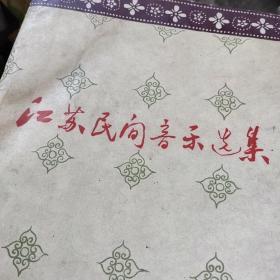 江苏民间音乐选集